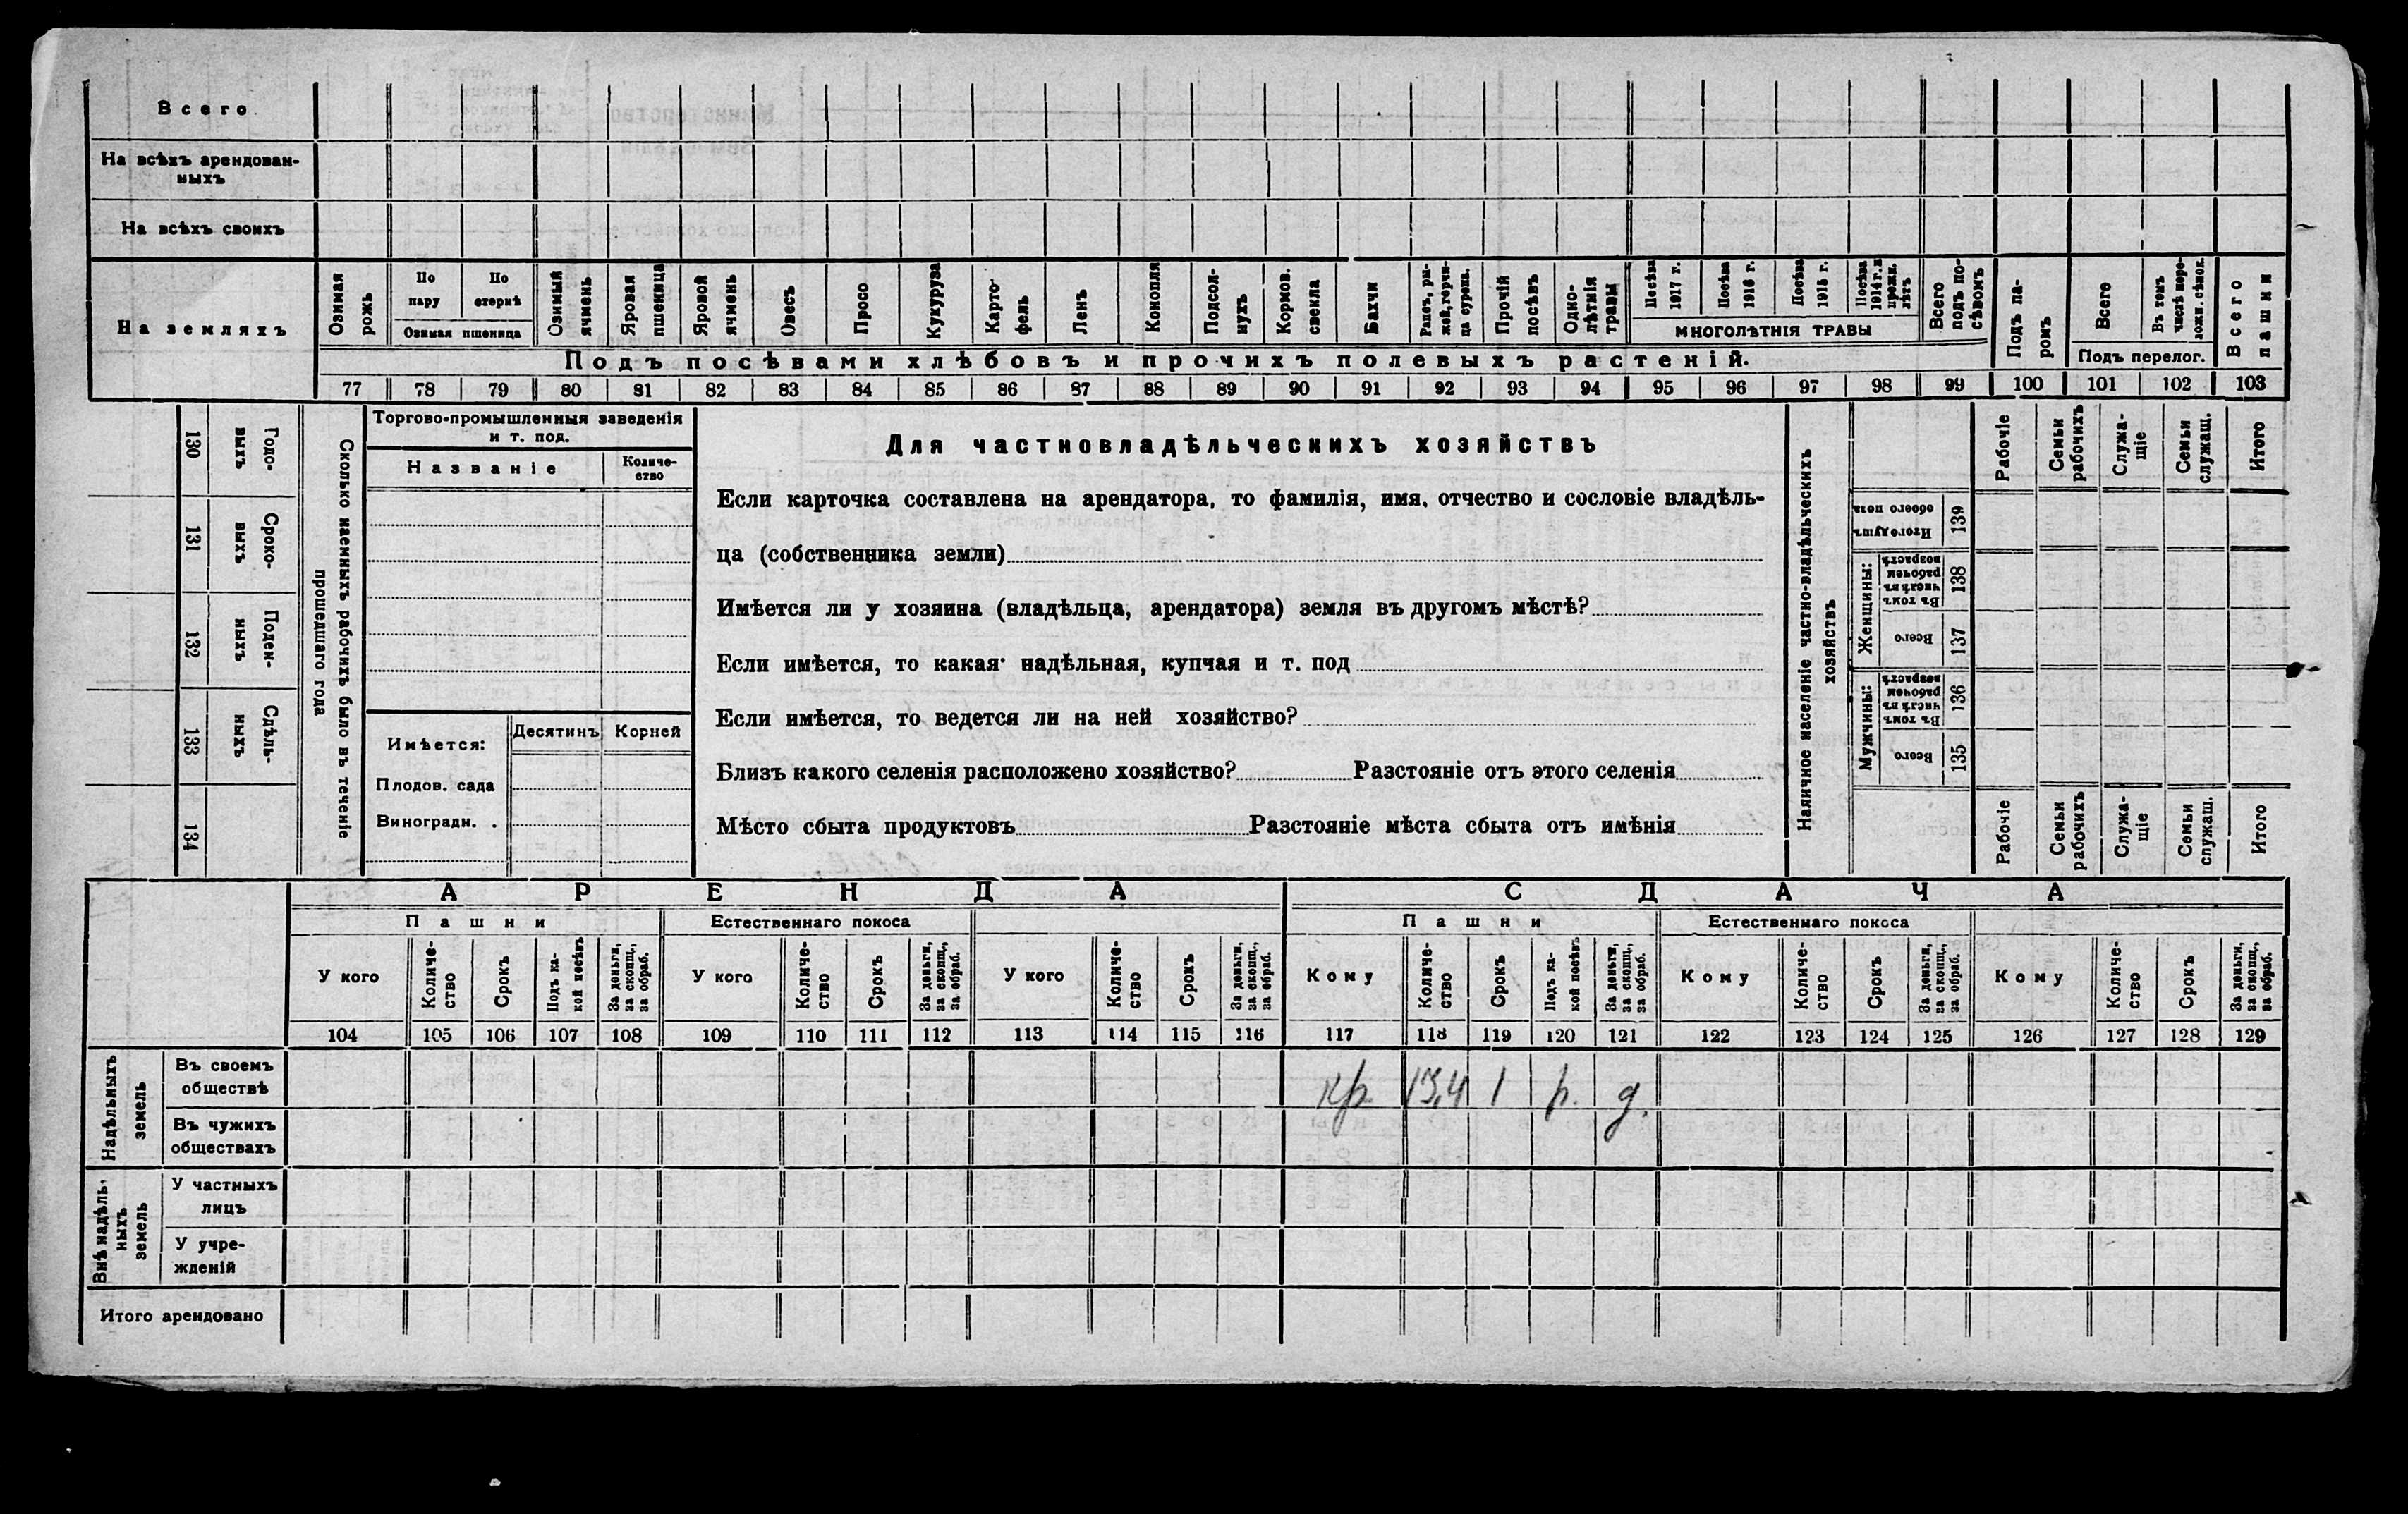 Всего.
На всѣхъ арендован-
ныхъ
На всѣхъ своихъ
На земляхъ
Озимая рожь
По пару
По стернѣ
Озимая пшеница
Озимый ячмень
Яровая пшеница
Яровой ячмень
Овесъ
Просо
Кукуруза
Карто-
фель
Ленъ
Конопля
Подсол-
нухъ
Кормов. свекла
Бахчи
Рапсъ, ры-
жей, горчи-
ца сурепа.
Прочій посѣвъ
Одно-
лѣтнія травы
Посѣва 1917 г.
Посѣва 1916 г.
Посѣва 1915 г.
Посѣва 1914 г. и прежн. лѣтъ
МНОГОЛѢТНІЯ ТРАВЫ
Всего подъ по-
сѣвомъ
Подъ па-
ромъ
Всего
Въ томъ числѣ пере-
ложн. сѣнок.
Подъ перелог.
Всего пашни
Подъ посѣвами хлѣбовъ и прочихъ полевыхъ растеній.
77 78 79 80 81 82 83 84 85 86 87 88 89 90 91 92 93 94 95 96 97 98 99 100 101 102 103
130 Годо-
выхъ
131 Сроко-
выхъ
132 Поден-
ныхъ
133 Сдѣль-
ныхъ
134
Сколько наемныхъ рабочихъ было въ теченіе
прошедшаго года
Торгово-промышленныя заведенія
и т. под.
Названіе
Количе-
ство
Имѣется:
Десятинъ
Корней
Плодов. сада
Виноградн. .
Для частновладѣльческихъ хозяйствъ
Если карточка составлена на арендатора, то фамилія, имя, отчество и сословіе владѣль-
ца (собственника земли)
Имѣется ли у хозяина (владѣльца, арендатора) земля въ другомъ мѣстѣ?
Если имѣется, то какая: надѣльная, купчая и т. под
Если имѣется, то ведется ли на ней хозяйство?
Близъ какого селенія расположено хозяйство? Разстояніе отъ этого селенія
Мѣсто сбыта продуктовъ Разстояніе мѣста сбыта отъ имѣнія
Наличное населеніе частно-владѣльческихъ
хозяйствъ
Рабочіе
Семьи рабочихъ
Служа-
щіе
Семьи служащ.
Итого
Итого душъ обоего пола
139
Женщины:
Въ томъ числѣ въ рабочемъ возрастѣ
138
Всего
137
Мужчины:
Въ томъ числѣ въ рабочемъ возрастѣ
136
Всего
135
Рабочіе
Семьи рабочихъ
Служа-
щіе
Семьи служащ.
Итого
АРЕНДА
СДАЧА
Пашни
Естественнаго покоса
Пашни
Естественнаго покоса
У кого
Количе-
ство
Срокъ
Подъ ка-
кой посѣвъ
За деньги, за скопщ., за обраб.
У кого
Количе-
ство
Срокъ
За деньги, за скопщ., за обраб.
У кого
Количе-
ство
Срокъ
За деньги, за скопщ., за обраб.
Кому
Количе-
ство
Срокъ
Подъ ка-
кой посѣвъ
За деньги, за скопщ., за обраб.
Кому
Количе-
ство
Срокъ
За деньги, за скопщ., за обраб.
Кому
Количе-
ство
Срокъ
За деньги, за скопщ., за обраб.
104 105 106 107 108 109 110 111 112 113 114 115 116 117 118 119 120 121 122 123 124 125 126 127 128 129
Надѣльныхъ
земель
Въ своемъ
обществѣ
кр 13,4 1 р. д.
Въ чужихъ
обществахъ
Внѣ надѣль-
ныхъ
земель
У частныхъ
лицъ
У учре-
жденій
Итого арендовано